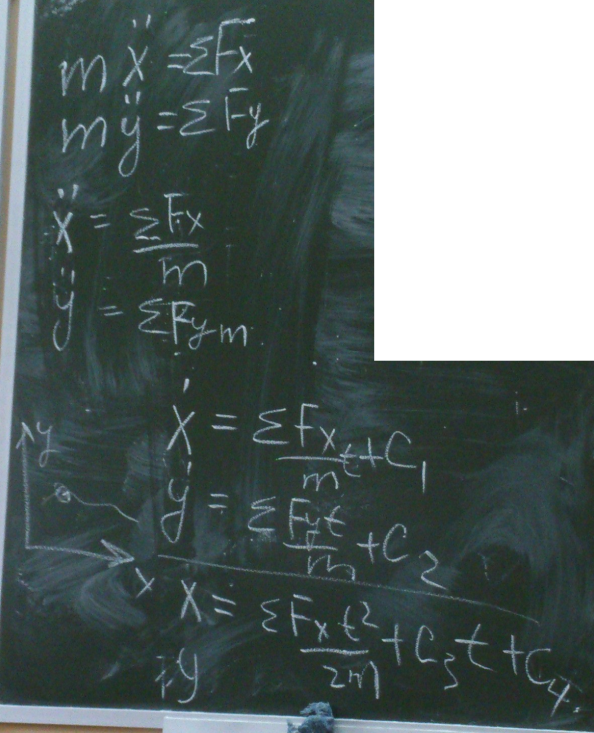 mẍ = ΣFx
mÿ = ΣFy
ẍ = ΣFx/m
ÿ = ΣFy m
ẋ = ΣFx/m t + C₁
ẏ = ΣFyt/m + C₂
y
x
x = ΣFx t²/2m + C₃t + C₄.
y